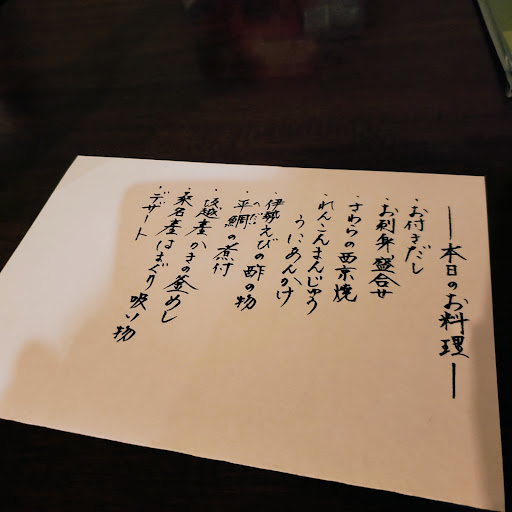 ―本日のお料理―
・お付きだし
・お刺身盛合せ
・さわらの西京焼
・れんこんまんじゅう
うにあんかけ
・伊勢えびの酢の物
・平鯛の煮付
へだい
・坂越産かきの釜めし
・桑名産はまぐり 吸い物
・デザート